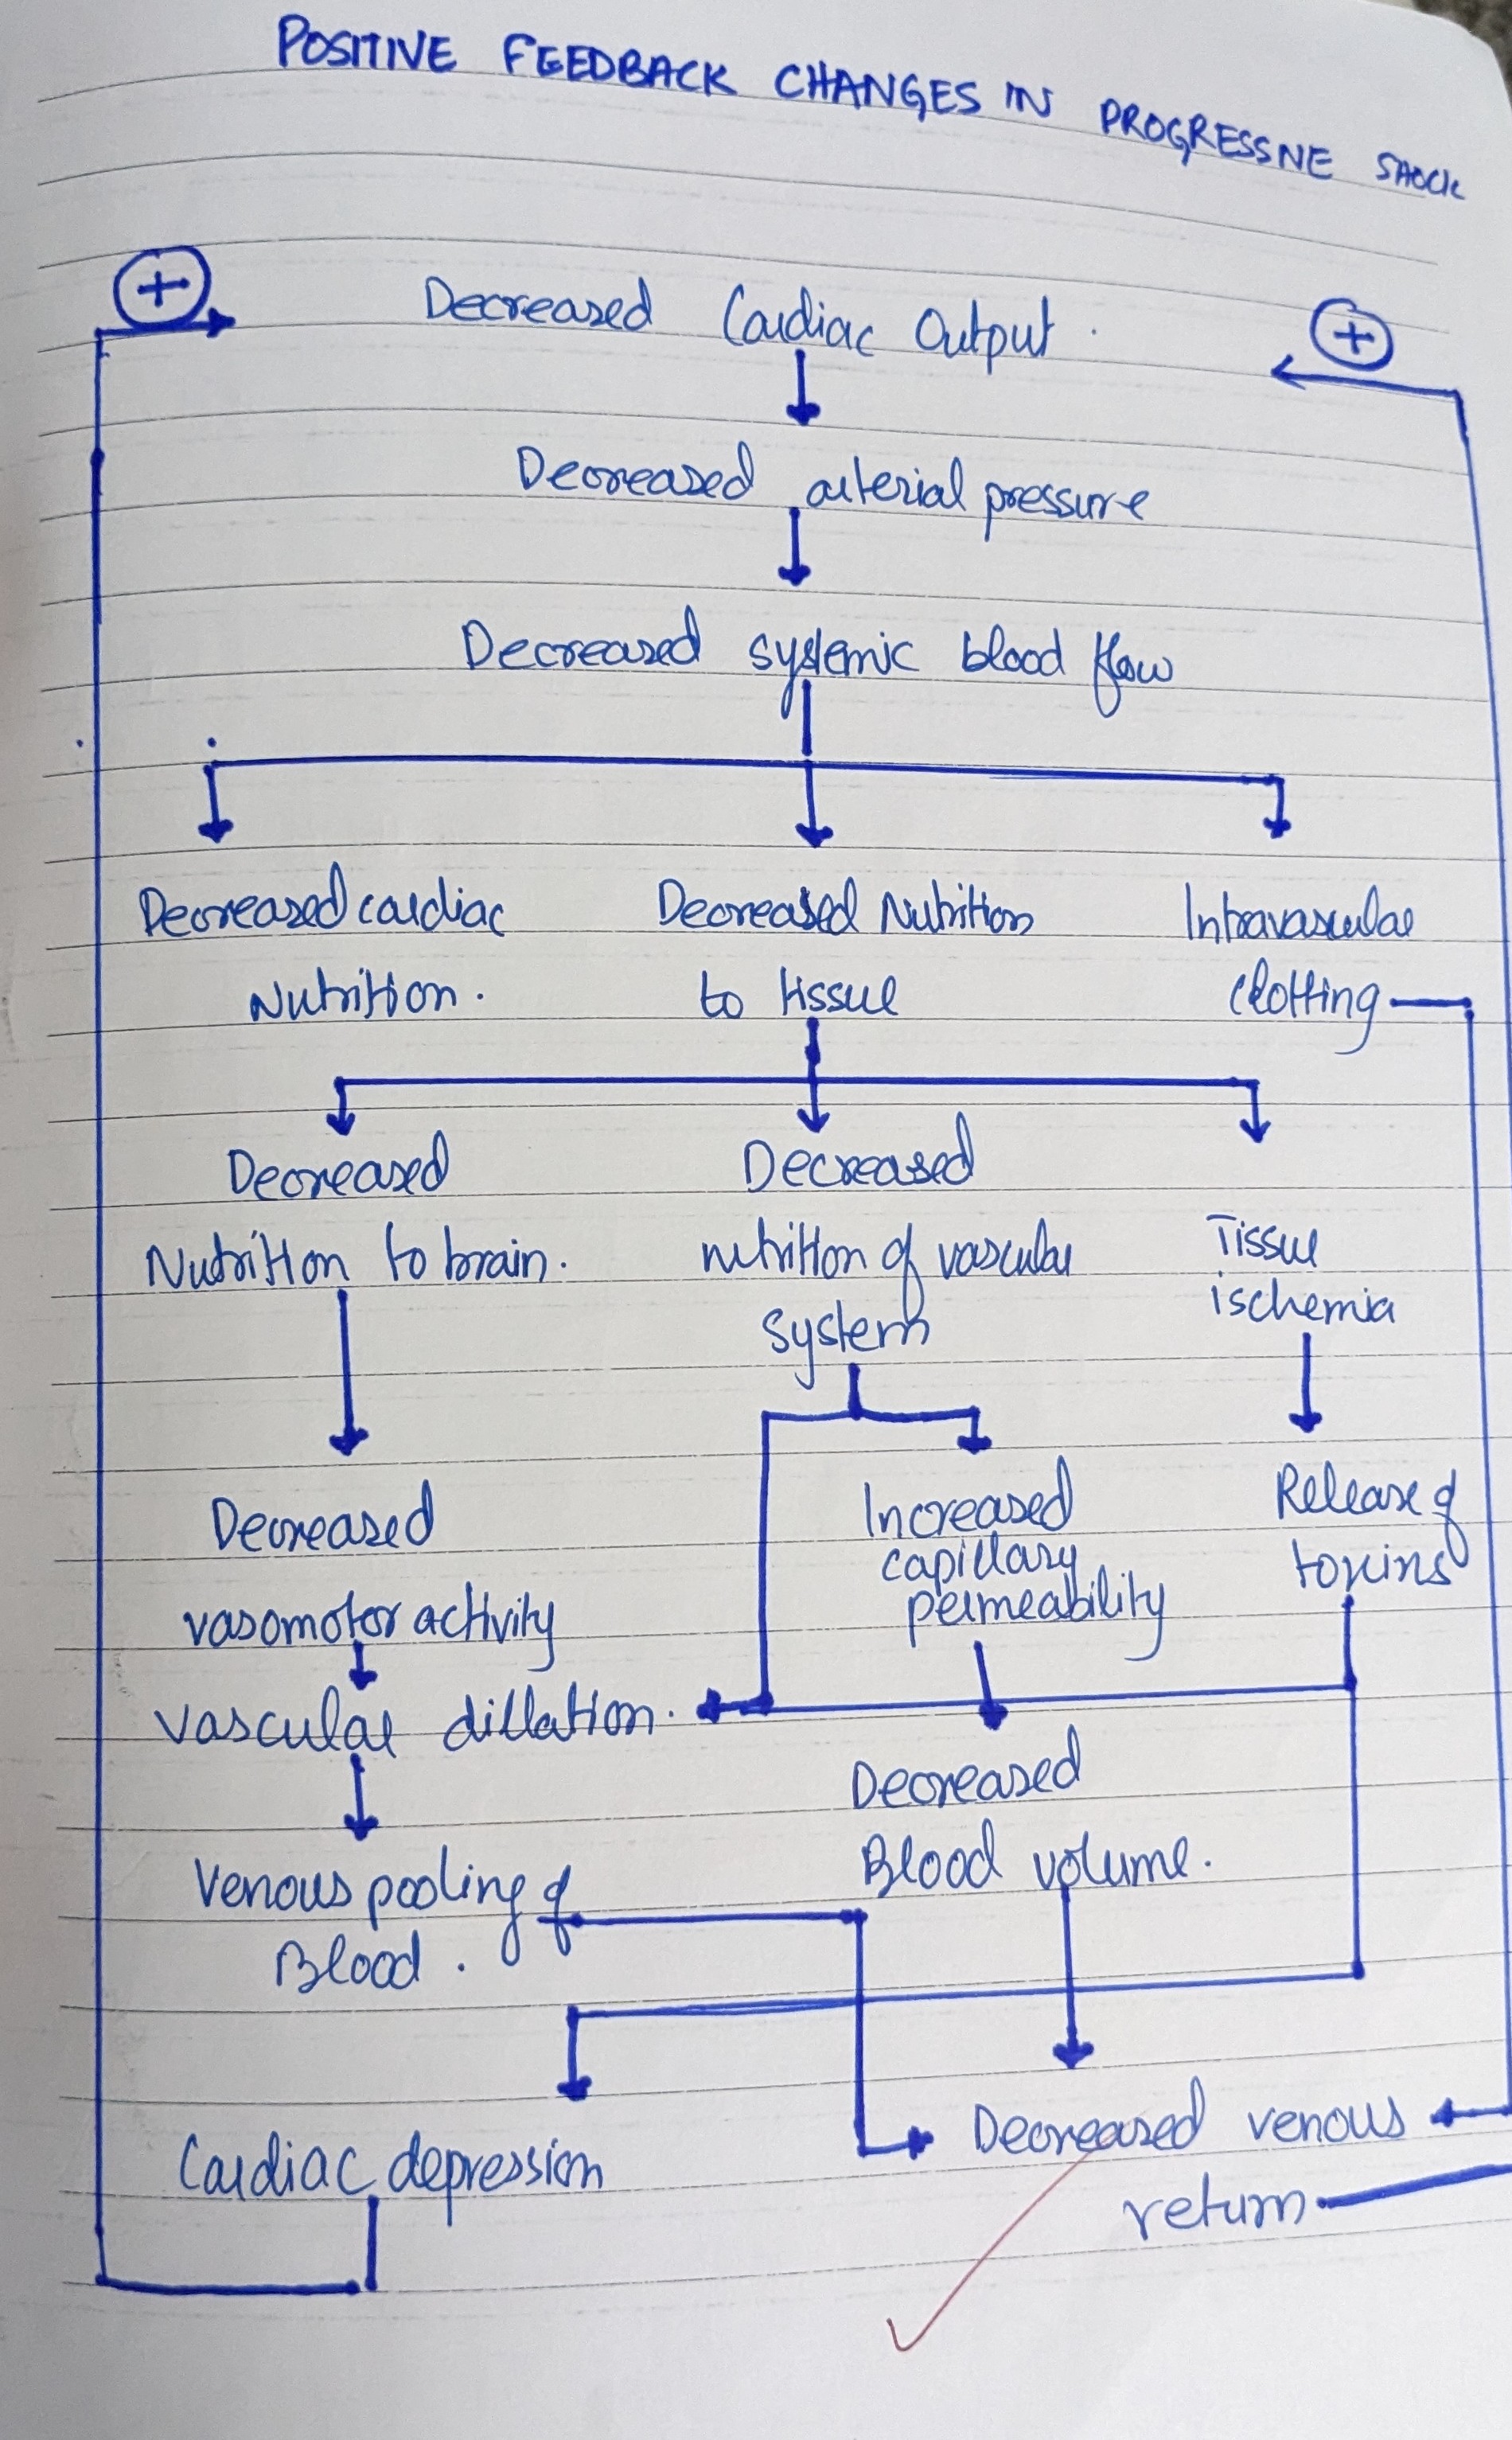 POSITIVE FEEDBACK CHANGES IN PROGRESSIVE SHOCK
+
Decreased Cardiac Output.
+
Decreased arterial pressure
Decreased systemic blood flow
Decreased cardiac
Nutrition.
Decreased Nutrition
to tissue
Intravascular
clotting
Decreased
Nutrition to brain.
Decreased
nutrition of vascular
system
Tissue
ischemia
Decreased
vasomotor activity
Increased
capillary
permeability
Release of
toxins
vascular dillation.
Decreased
Blood volume.
Venous pooling of
Blood.
Cardiac depression
Decreased venous
return